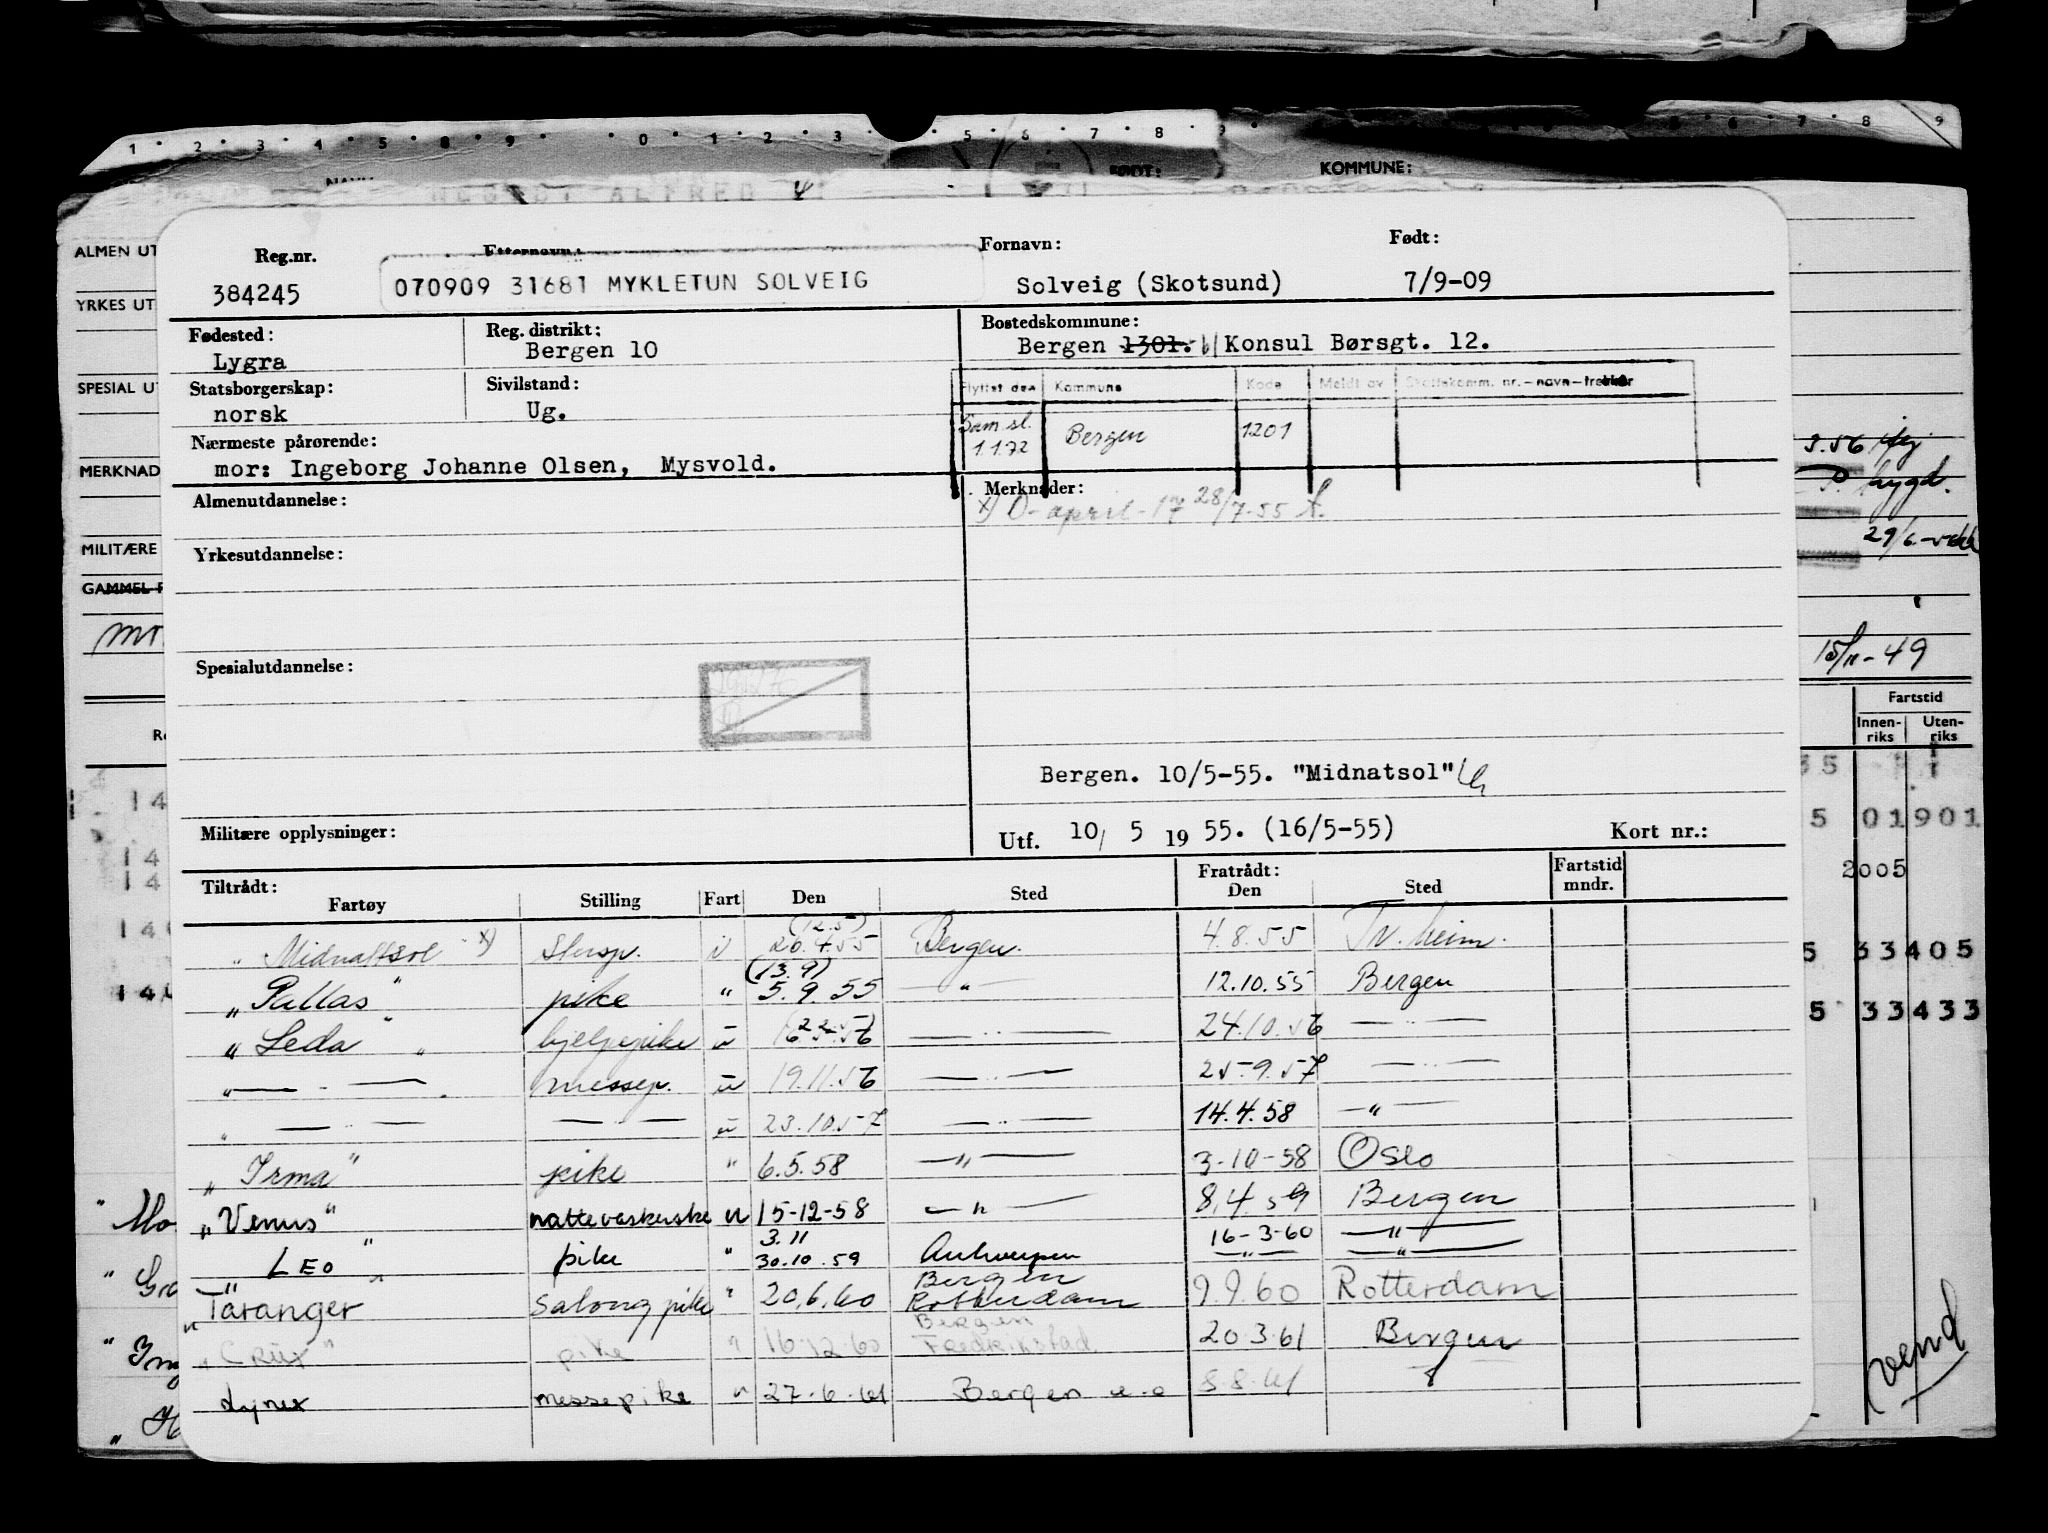 1 2 3 4 5 8 9 0 1 2 3 5 6 7 8 9 5 6 7 8 9
KOMMUNE:
ALFRED
ALMEN UT
YRKES UT
SPESIAL UT
MERKNAD
MILITÆRE
GAMMEL F
Reg.nr. Etternavn: Fornavn: Født:
384245 070909 31681 MYKLETUN SOLVEIG Solveig (Skotsund) 7/9-09
Fødested: Reg. distrikt: Bostedskommune:
Lygra Bergen 10 Bergen 1301. Konsul Børsgt. 12.
Statsborgerskap: Sivilstand:
norsk Ug.
Flyttet den Kommune Kode Meldt av Skattekomm. nr.-navn-trekker
Sam.sl. 1.1.72 Bergen 1201
Nærmeste pårørende:
mor: Ingeborg Johanne Olsen, Mysvold.
Almenutdannelse: Merknader:
x) O-april-17 28/7-55
Yrkesutdannelse:
Spesialutdannelse:
Bergen. 10/5-55. "Midnatsol"
Militære opplysninger: Utf. 10/ 5 19 55. (16/5-55) Kort nr.:
Tiltrådt: Fratrådt: Fartstid
Fartøy Stilling Fart Den Sted Den Sted mndr.
" Midnattsol x) (12.5) 26.4.55 Bergen. 4.8.55 Tr.heim.
" Pallas " pike " (13.9) 5.9.55 — " — 12.10.55 Bergen
" Leda " hjelpepike u — " — 24.10.56 — " —
" — " — messep. u 19.11.56 — " — 25.9.57 — " —
" — " — — " — u 23.10.57 — " — 14.4.58 — " —
" Irma " pike " 6.5.58 — " — 3-10-58 Oslo
" Venus " nattevaskerske u 15-12-58 — " — 8.4.59 Bergen
" LEO " pike " 3.11 30.10.59 Antwerpen 16-3-60 — " —
— " — — " —
" Taranger " Salongpike " 20.6.60 Bergen Rotterdam 9.9.60 Rotterdam
" Crux " pike " 16.12.60 Bergen Fredrikstad 20.3.61 Bergen
Lynx messepike u 27.6.61 Bergen 8.8.61
bygd.
15/11-49
Fartstid
Innen-riks Uten-riks
5 01901
2005
5 33405
5 33433
vend